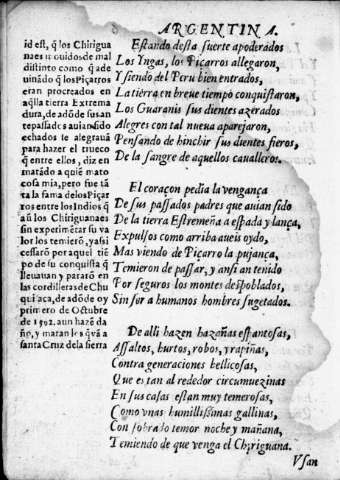 ARGENTINA.
id est, q̃ los Chirigua
naes
distinto como q̃ ade
uinãdo q̃ los Piçarros
eran procreados en
aq̃lla tierra Extrema
dura, de adõde sus an
tepassados auian sido
echados se alegrauã
para hazer el trueco
q̃ entre ellos, diz en
matãdo a quiẽ mato
cosa mia, pero fue tã
ta la fama delos Piçar
ros entre los Indios q̃
aũ los Chiriguanaes
sin experimẽtar su va
lor los temierõ, y assi
cessarõ por aquel tiẽ
po de su conquista q̃
lleuauan y pararõ en
las cordilleras de Chu
quiaca, de adõde oy
primero de Octubre
de 1592. aun hazẽ da
ño, y maran los q̃ vã a
santa Cruz dela sierra
Estando desta suerte apoderados
Los Yngas, los Piçarros allegaron,
Y siendo del Peru bien entrados,
La tierra en breue tiempo conquistaron,
Los Guaranis sus dientes azerados
Alegres con tal nueua aparejaron,
Pensando de hinchir sus dientes fieros,
De la sangre de aquellos caualleros.
El coraçon pedia la vengança
De sus passados padres que auian sido
De la tierra Estremeña a espada y lança,
Expulsos como arriba aueis oydo,
Mas viendo de Piçarro la pujança,
Temieron de passar, y ansi an tenido
Por seguros los montes despoblados,
Sin ser a humanos hombres sugetados.
De alli hazen hazañas espantosas,
Assaltos, hurtos, robos, y rapiñas,
Contra generaciones bellicosas,
Que estan al rededor circumuezinas
En sus casas estan muy temerosas,
Como vnas humillissimas gallinas,
Con sobrado temor noche y mañana,
Temiendo de que venga el Chiriguana.
Vsan